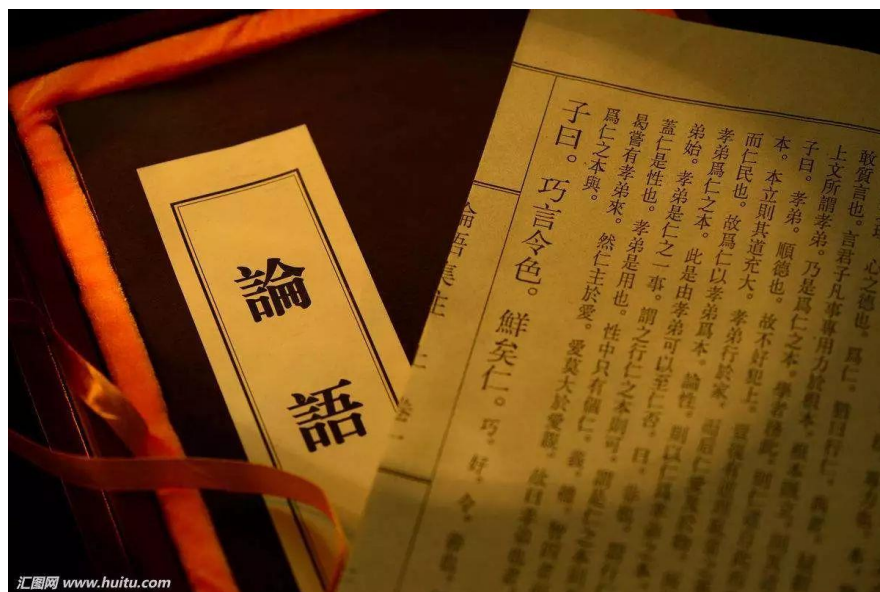 論語
心之德也。爲仁。猶曰行仁。
敢質言也。言君子凡事專用力於根本。根本既立。
上文所謂孝弟。乃是爲仁之本。學者務此。則仁道自此
子曰。孝弟。順德也。故不好犯上。豈復有逆理亂常之
本。本立則其道充大。孝弟行於家。而后仁愛及於物。
而仁民也。故爲仁以孝弟爲本。論性。則以仁爲孝弟之
孝弟爲仁之本。此是由孝弟可以至仁否。曰。非也。謂行
弟始。孝弟是仁之一事。謂之行仁之本則可。謂是仁之本
蓋仁是性也。孝弟是用也。性中只有箇仁。義。禮。智四
曷嘗有孝弟來。然仁主於愛。愛莫大於愛親。故曰孝弟也者
爲仁之本與。
子曰。巧言令色。鮮矣仁。巧。好。令。善也。
論語集注 卷一
汇图网 www.huitu.com